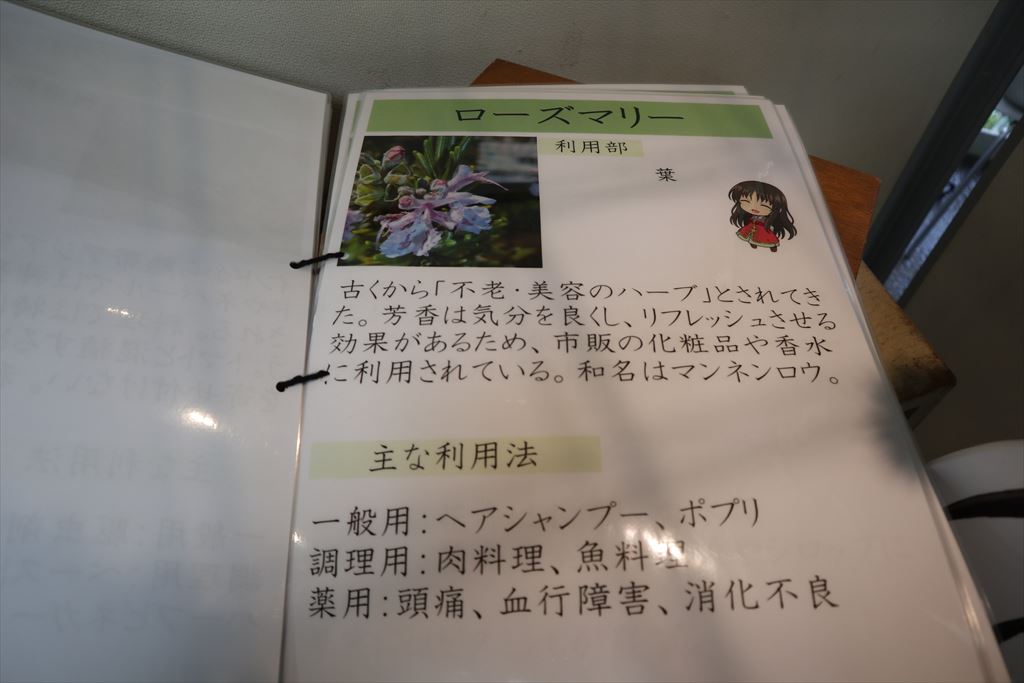 ローズマリー
利用部
葉
古くから「不老・美容のハーブ」とされてき
た。芳香は気分を良くし、リフレッシュさせる
効果があるため、市販の化粧品や香水
に利用されている。和名はマンネンロウ。
主な利用法
一般用：ヘアシャンプー、ポプリ
調理用：肉料理、魚料理
薬用：頭痛、血行障害、消化不良